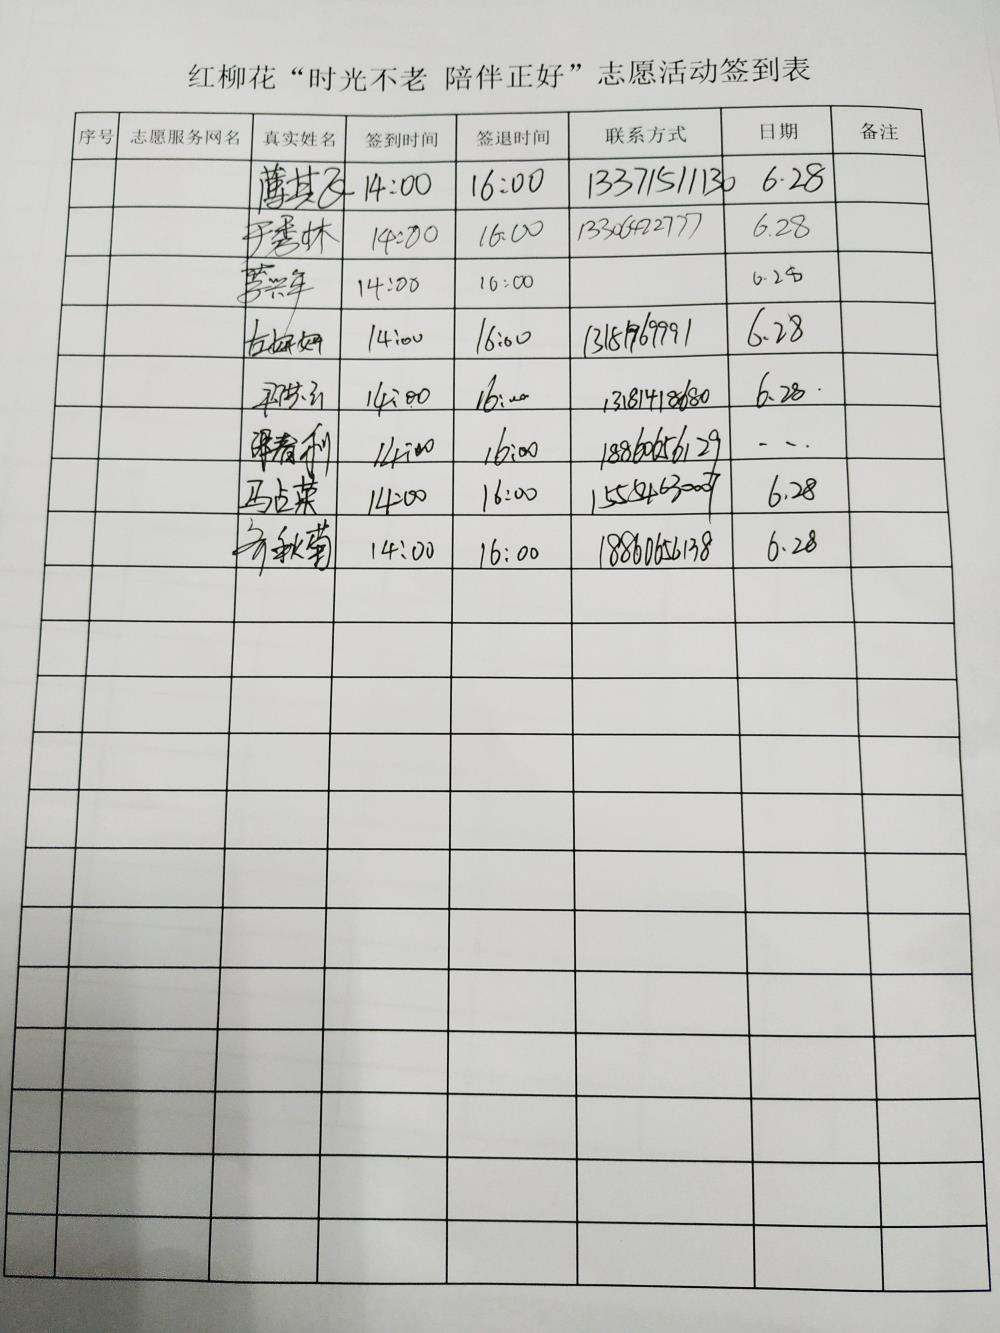 红柳花“时光不老 陪伴正好”志愿活动签到表
序号 志愿服务网名 真实姓名 签到时间 签退时间 联系方式 日期 备注
薄其飞 14:00 16:00 13371511130 6.28
于秀林 14:00 16:00 6.28
14:00 16:00 6.28
14:00 16:00 6.28
14:00 16:00 13181418680 6.28
14:00 16:00 18860656129
马占英 14:00 16:00 6.28
齐秋菊 14:00 16:00 18860656138 6.28